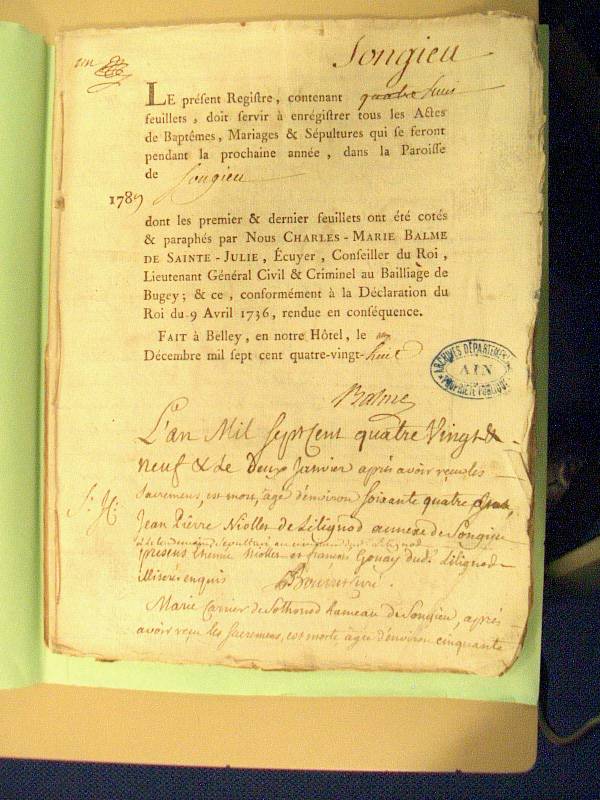 un
Songieu
LE préſent Regiſtre, contenant quatre huit
feuillets, doit ſervir à enrégiſtrer tous les Actes
de Baptêmes, Mariages & Sépultures qui ſe feront
pendant la prochaine année, dans la Paroiſſe
de Songieu
1789
dont les premier & dernier feuillets ont été cotés
& paraphés par Nous CHARLES-MARIE BALME
DE SAINTE-JULIE, Écuyer, Conſeiller du Roi,
Lieutenant Général Civil & Criminel au Bailliage de
Bugey; & ce, conformément à la Déclaration du
Roi du 9 Avril 1736, rendue en conſéquence.
FAIT à Belley, en notre Hôtel, le
Décembre mil ſept cent quatre-vingt-huit
ARCHIVES DÉPARTEMENT
AIN
PROPRIÉTÉ PUBLIQUE
Balme
L'an Mil Sept Cent quatre Vingt &
neuf & le Deux Janvier après avoir reçu les
Sacremens, est mort, âgé d'environ soixante quatre ans,
S: H:
Jean Pierre Niollet de Lilignod annexe de Songieu
présens Niollet et françois Gonay dud. Lilignod
illiterés enquis Curé.
Marie Carrier de Sothonod hameau de Songieu, après
avoir reçu les Sacremens, est morte âgée d'environ cinquante